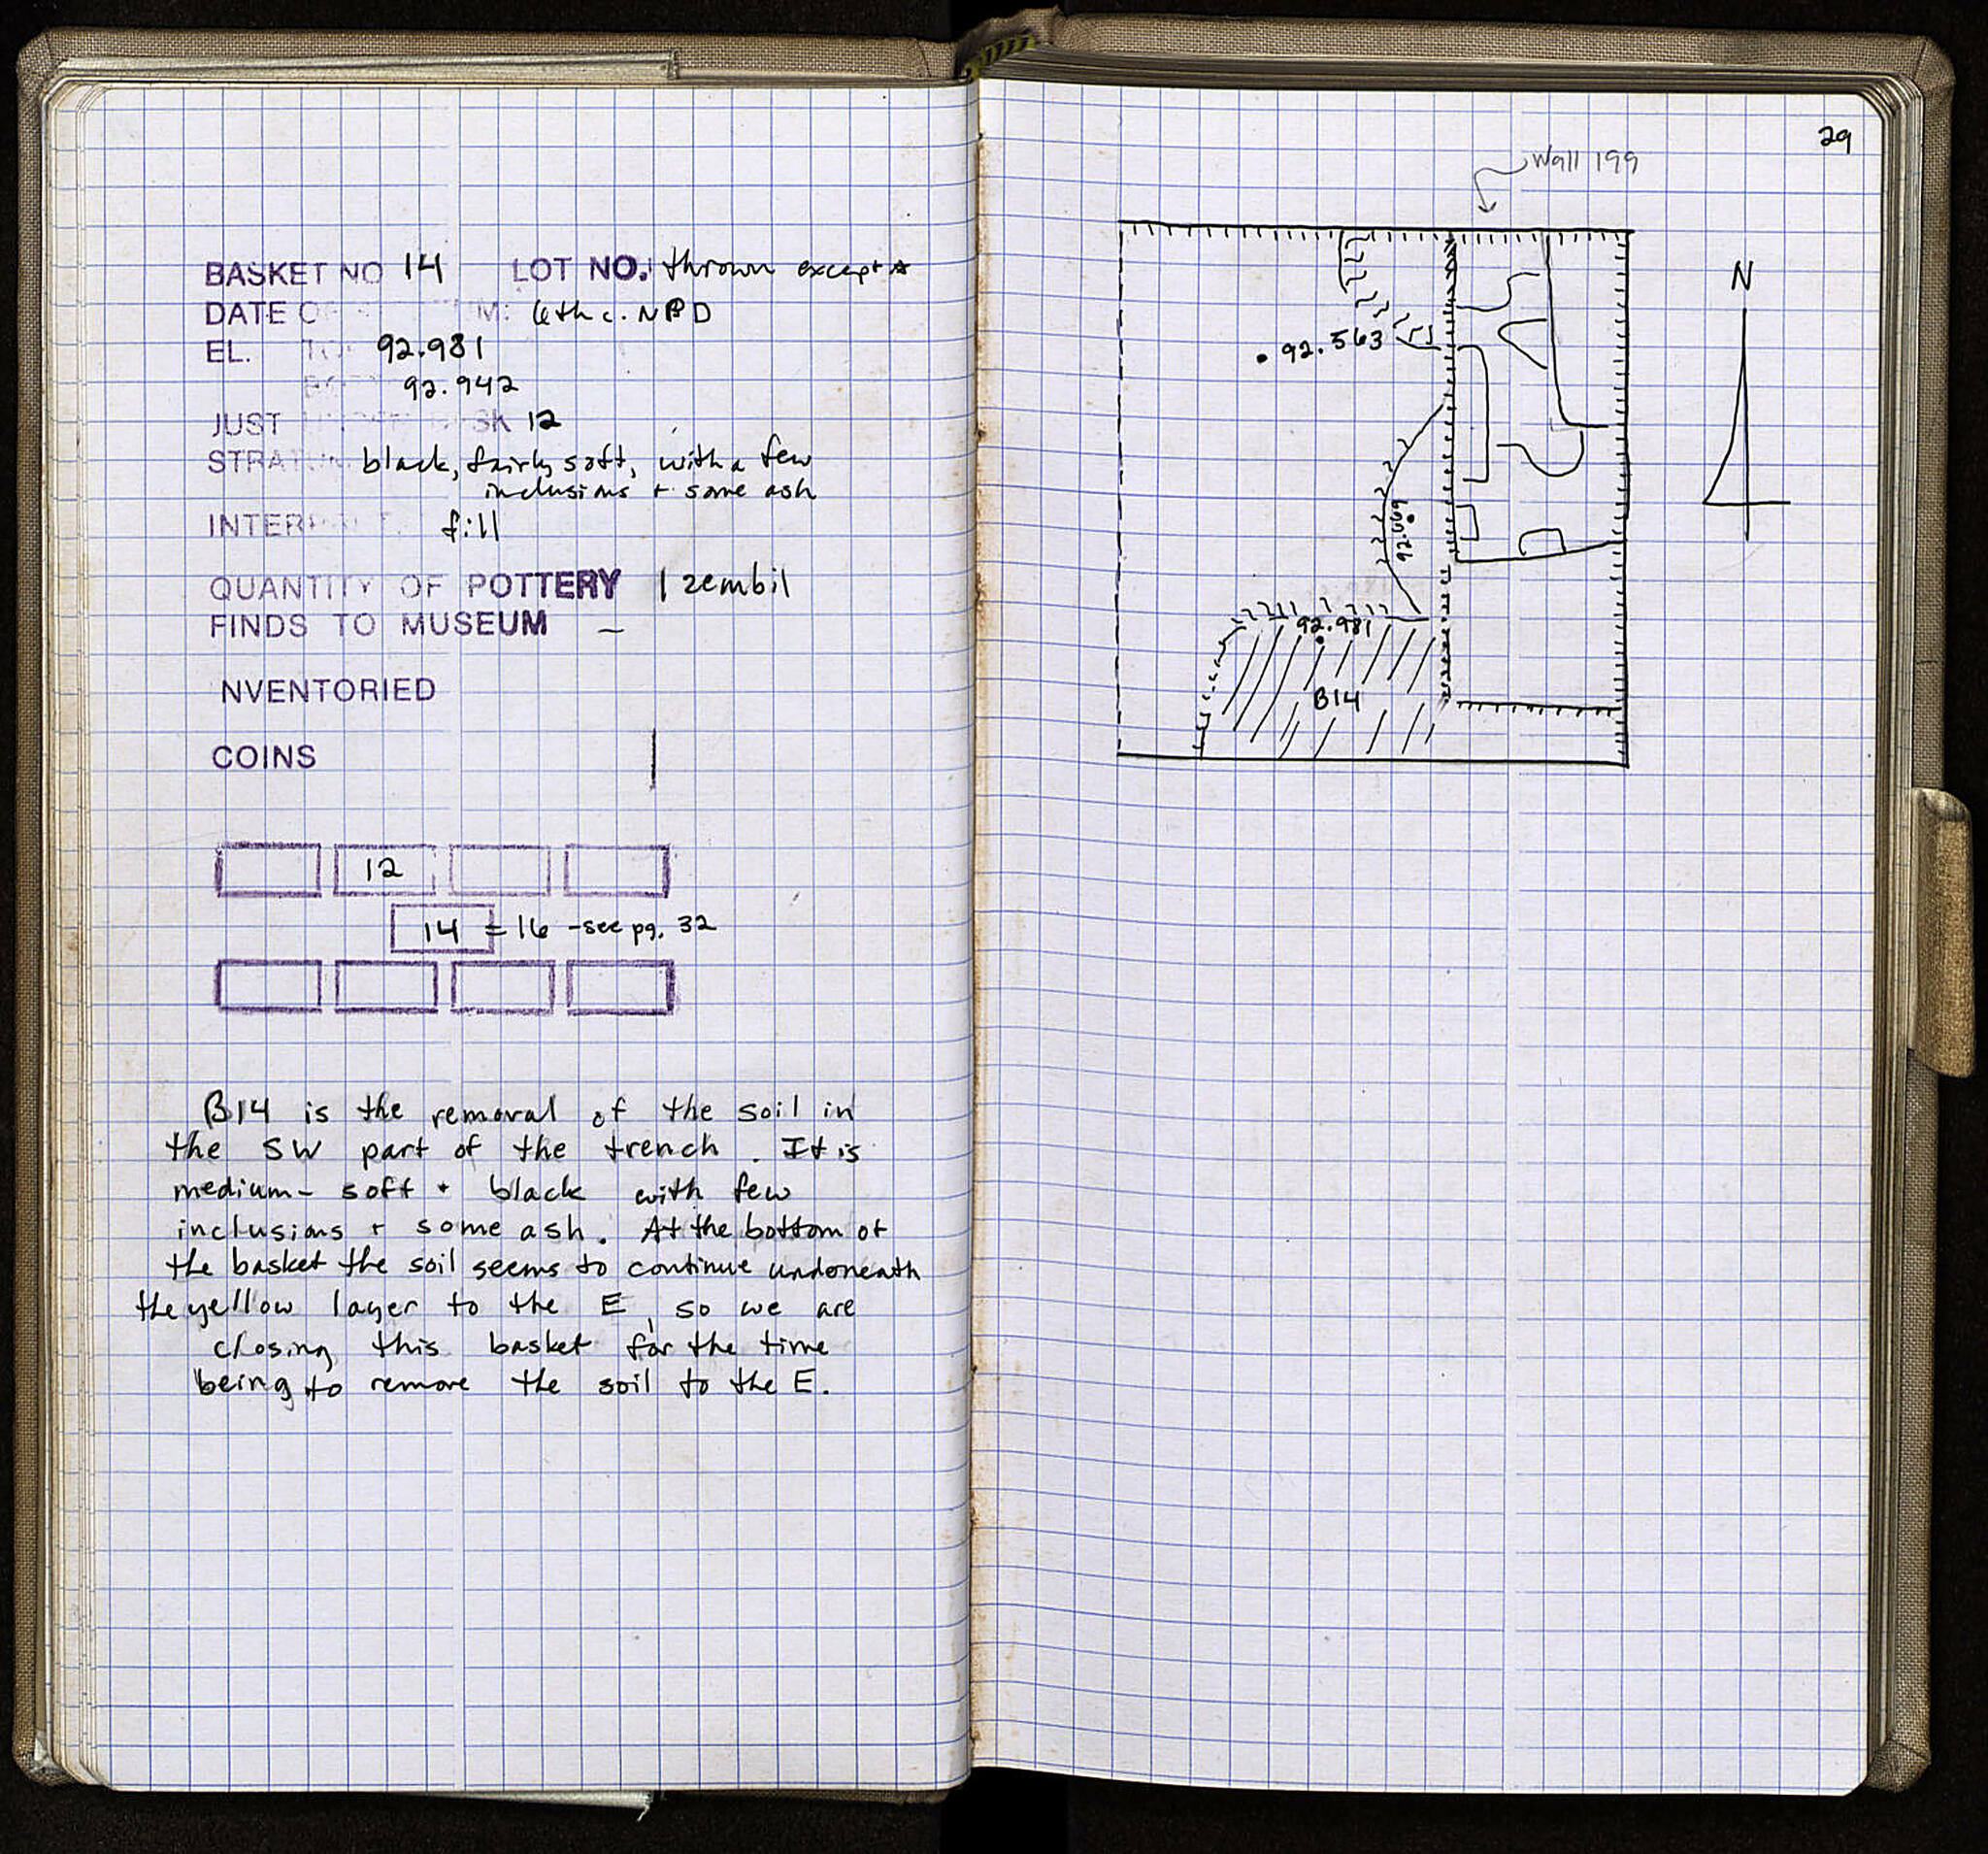 BASKET NO 14 LOT NO. thrown except *
DATE 6th c. NPD
EL. 92.981
92.942
JUST 12
black, fairly soft, with a few
inclusions + some ash
fill
QUANTITY OF POTTERY 1 zembil
FINDS TO MUSEUM —
NVENTORIED
COINS
12
14 = 16 - see pg. 32
B14 is the removal of the soil in
the SW part of the trench. It is
medium-soft + black with few
inclusions + some ash. At the bottom of
the basket the soil seems to continue underneath
the yellow layer to the E, so we are
closing this basket for the time
being to remove the soil to the E.
29
Wall 199
N
92.563
92.981
B14